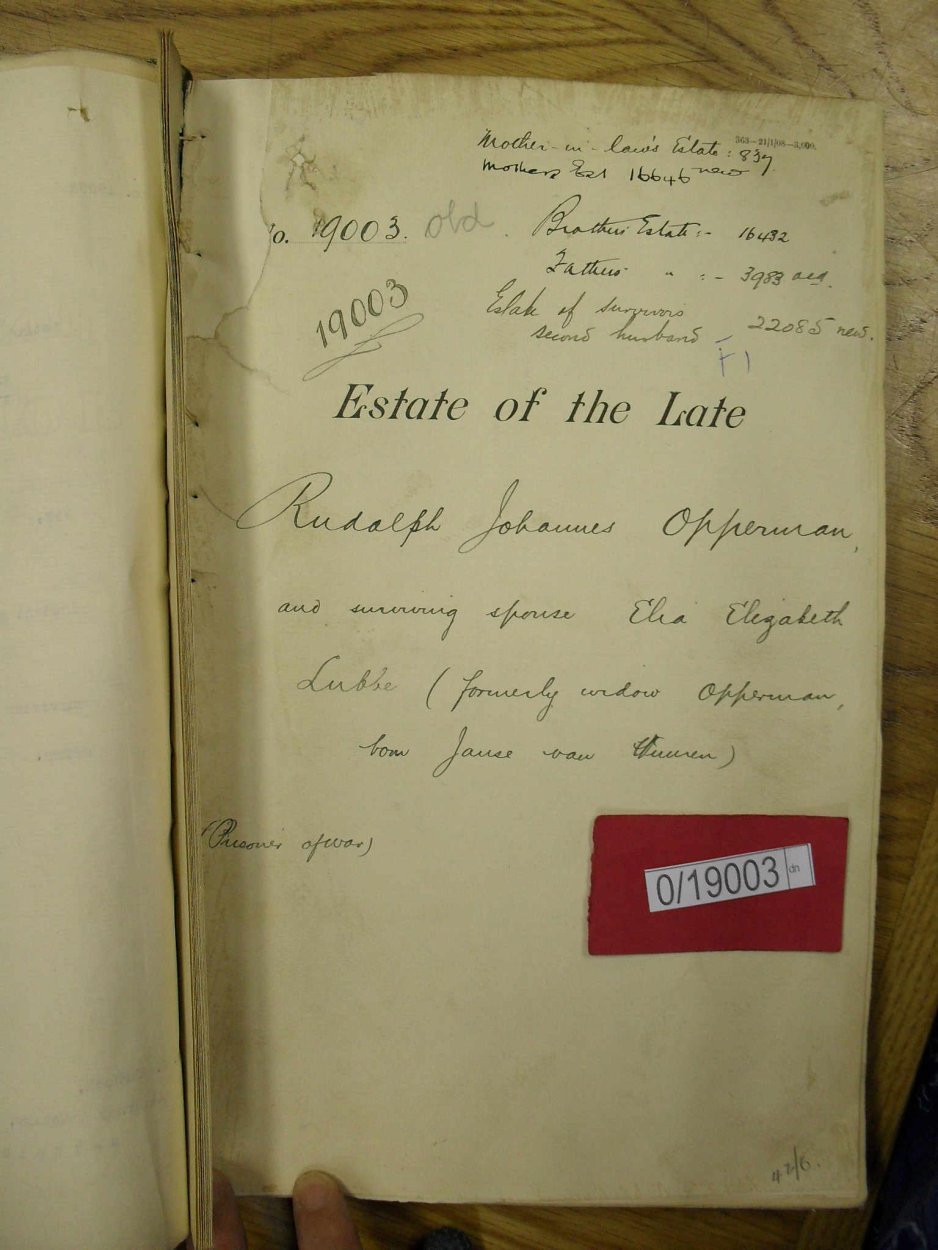 363—21/1/08—3,000.
Mother-in-law's Estate: 839
Mothers Est 16646 new
No. 19003. old. Brothers Estate:- 16432
Fathers " :- 3983 old.
19003
Estate of survivors
second husband - 22085 new.
F1
Estate of the Late
Rudolph Johannes Opperman,
and surviving spouse Elia Elizabeth
Lubbe (formerly widow Opperman,
born Janse van Vuuren)
(Prisoner of war)
0/19003 dn